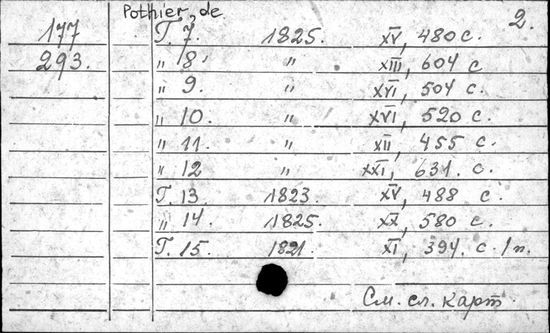 Pothier, de 2.
177 Т. 7. 1825. XV, 480 с.
293. " 8 " XIII, 604 с
" 9. " XVI, 504 с.
" 10. " XVI, 520 с.
" 11. " XII, 455 с.
" 12 " XXI, 631. с.
Т. 13. 1823. XV, 488 с.
" 14. 1825. XX, 580 с.
Т. 15. 1821. XI, 394. с. 1 п.
См. сл. карт.